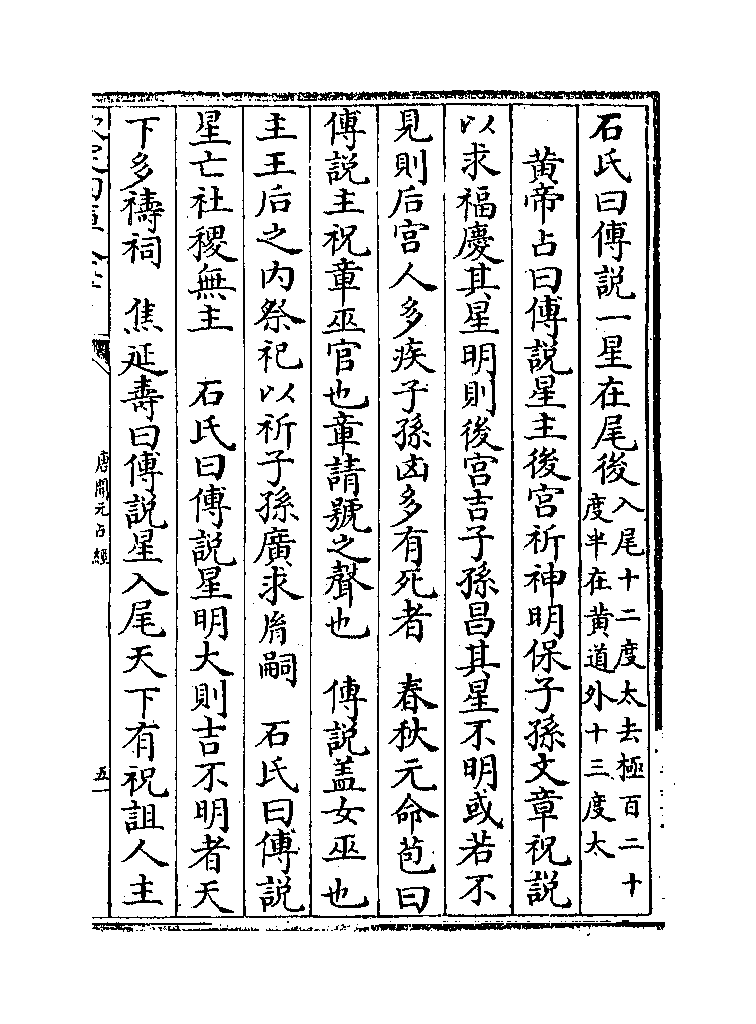 石氏曰傅説一星在尾後入尾十二度太去極百二十度半在黄道外十三度太
黄帝占曰傅説星主後宫祈神明保子孫文章祝説
以求福慶其星明則後宫吉子孫昌其星不明或若不
見則后宫人多疾子孫凶多有死者　春秋元命苞曰
傅説主祝章巫官也章請號之聲也　傅説盖女巫也
主王后之内祭祀以祈子孫廣求胤嗣　石氏曰傅説
星亡社稷無主　石氏曰傅説星明大則吉不明者天
下多禱祠　焦延壽曰傅説星入尾天下有祝詛人主
唐開元占經
五